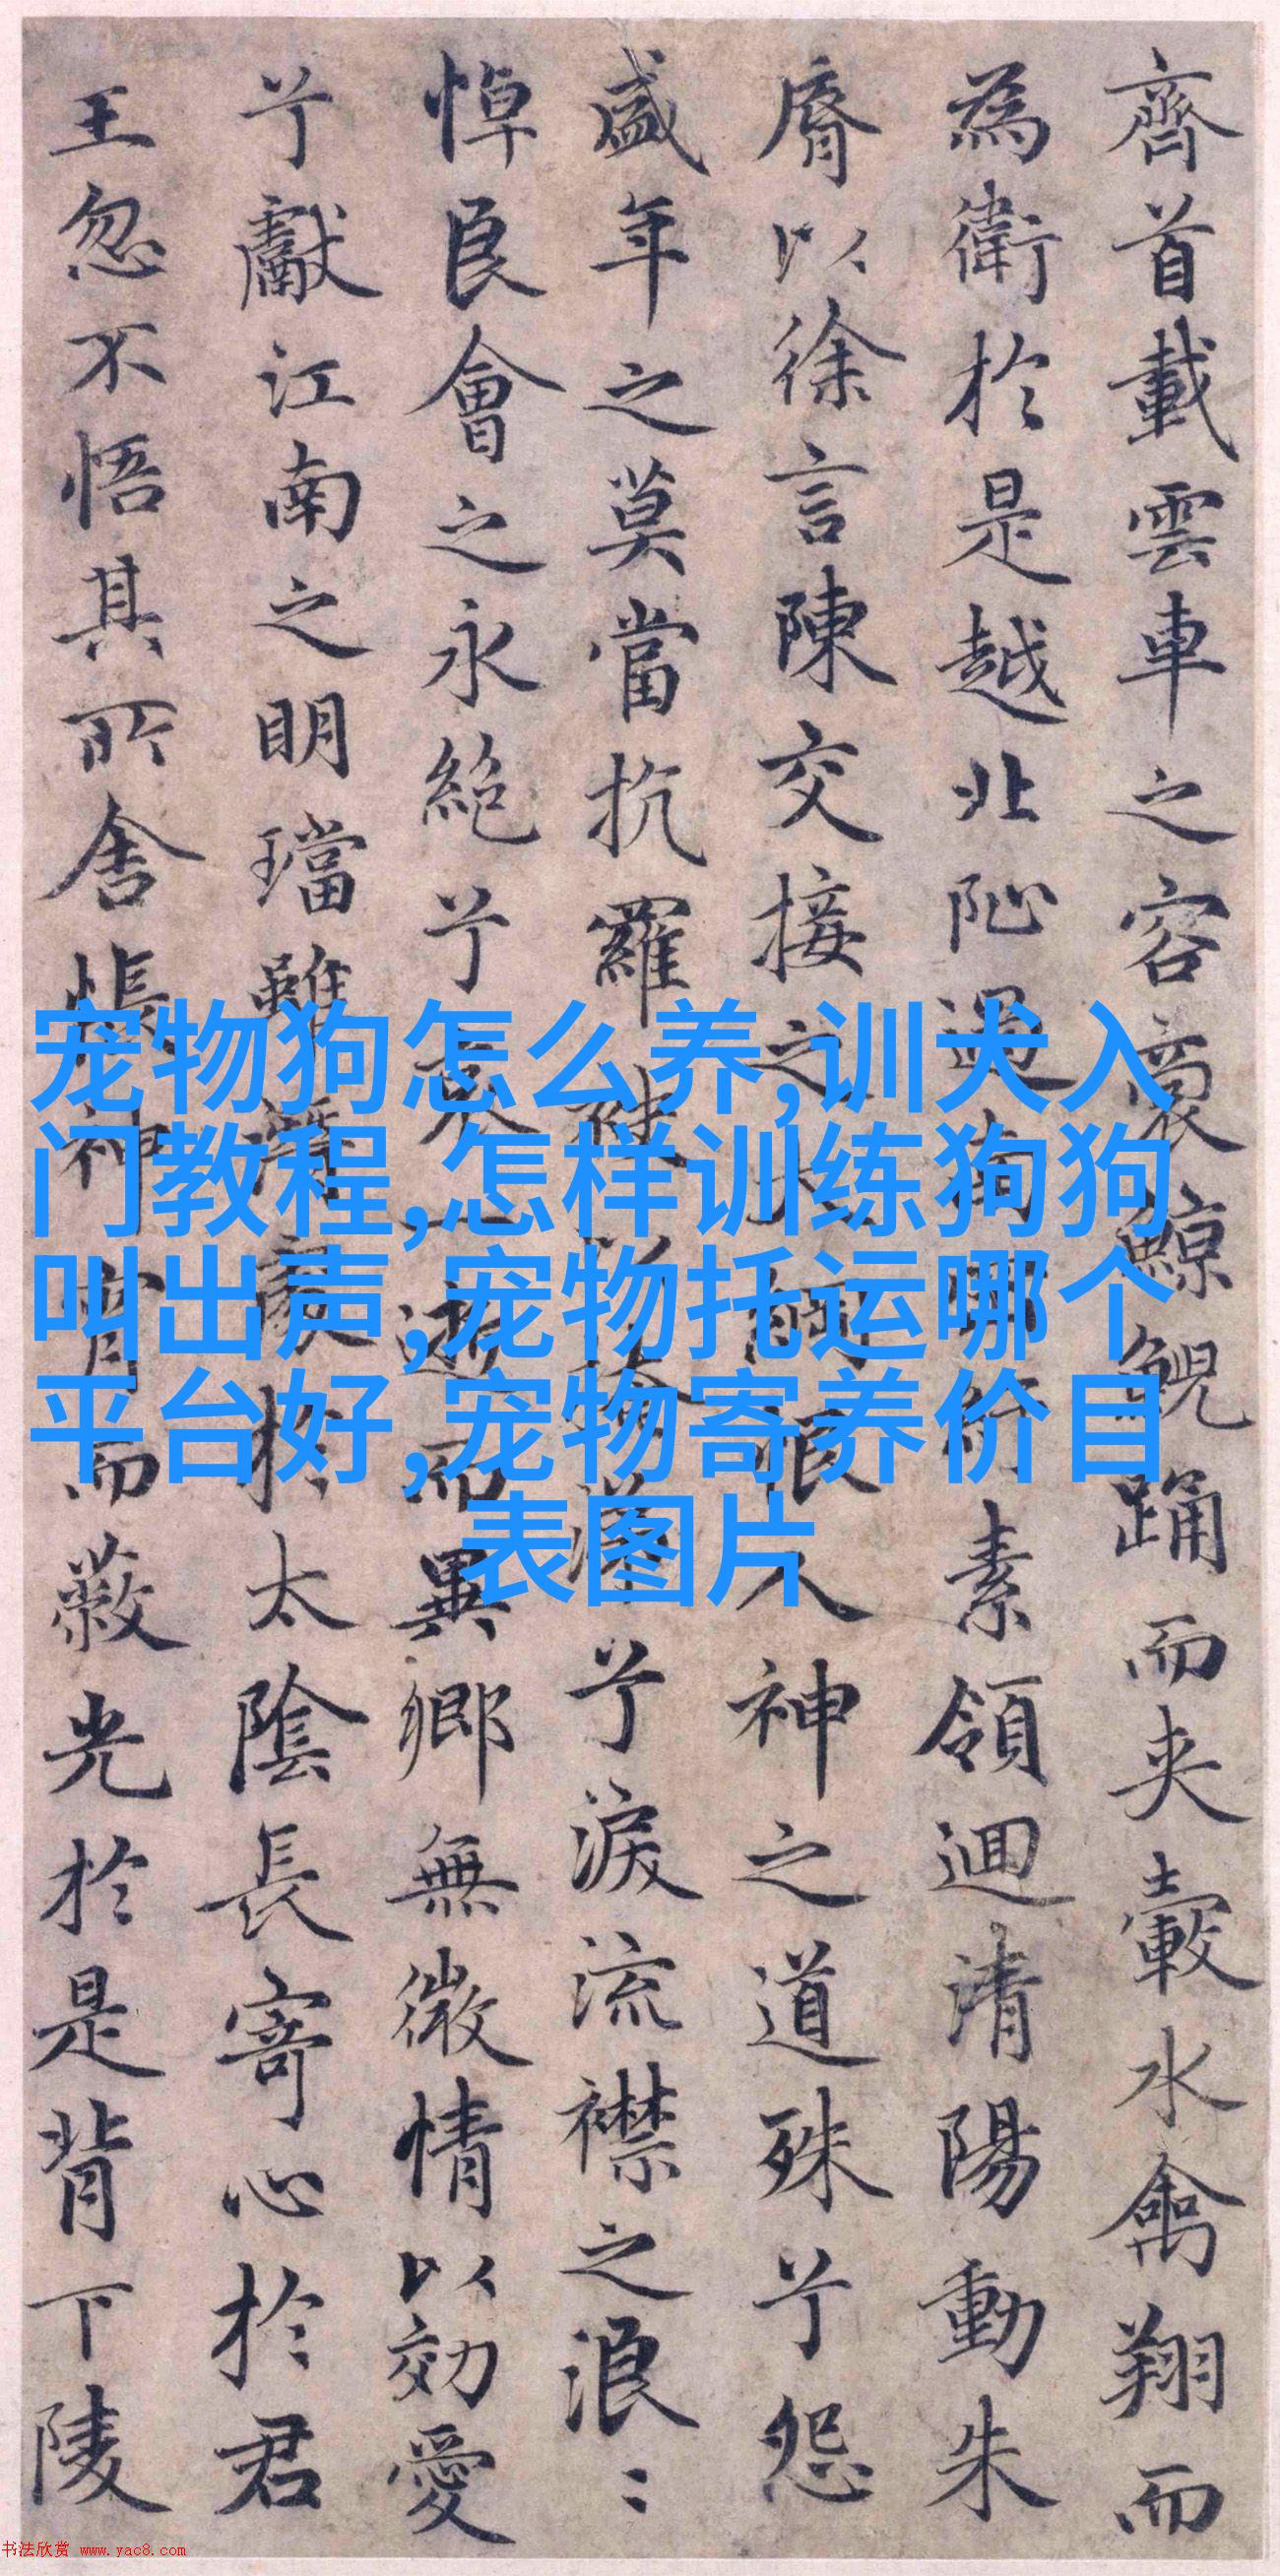 齊首載雲車之容裔鯨鯢踊而夾轂水禽翔而
為衛於是越北阯過南岡紆素領迴清陽動朱
脣以徐言陳交接之大綱恨人神之道殊兮怨
盛年之莫當抗羅袂以掩涕兮淚流襟之浪〻
悼良會之永絕兮哀一逝而異鄉無微情以効愛
兮獻江南之明璫雖潛處於太陰長寄心於君
王忽不悟其所舍悵神宵而蔽光於是背下陵
宠物狗怎么养,训犬入
门教程,怎样训练狗狗
叫出声,宠物托运哪个
平台好,宠物寄养价目
表图片
书法欣赏 www.yac8.com